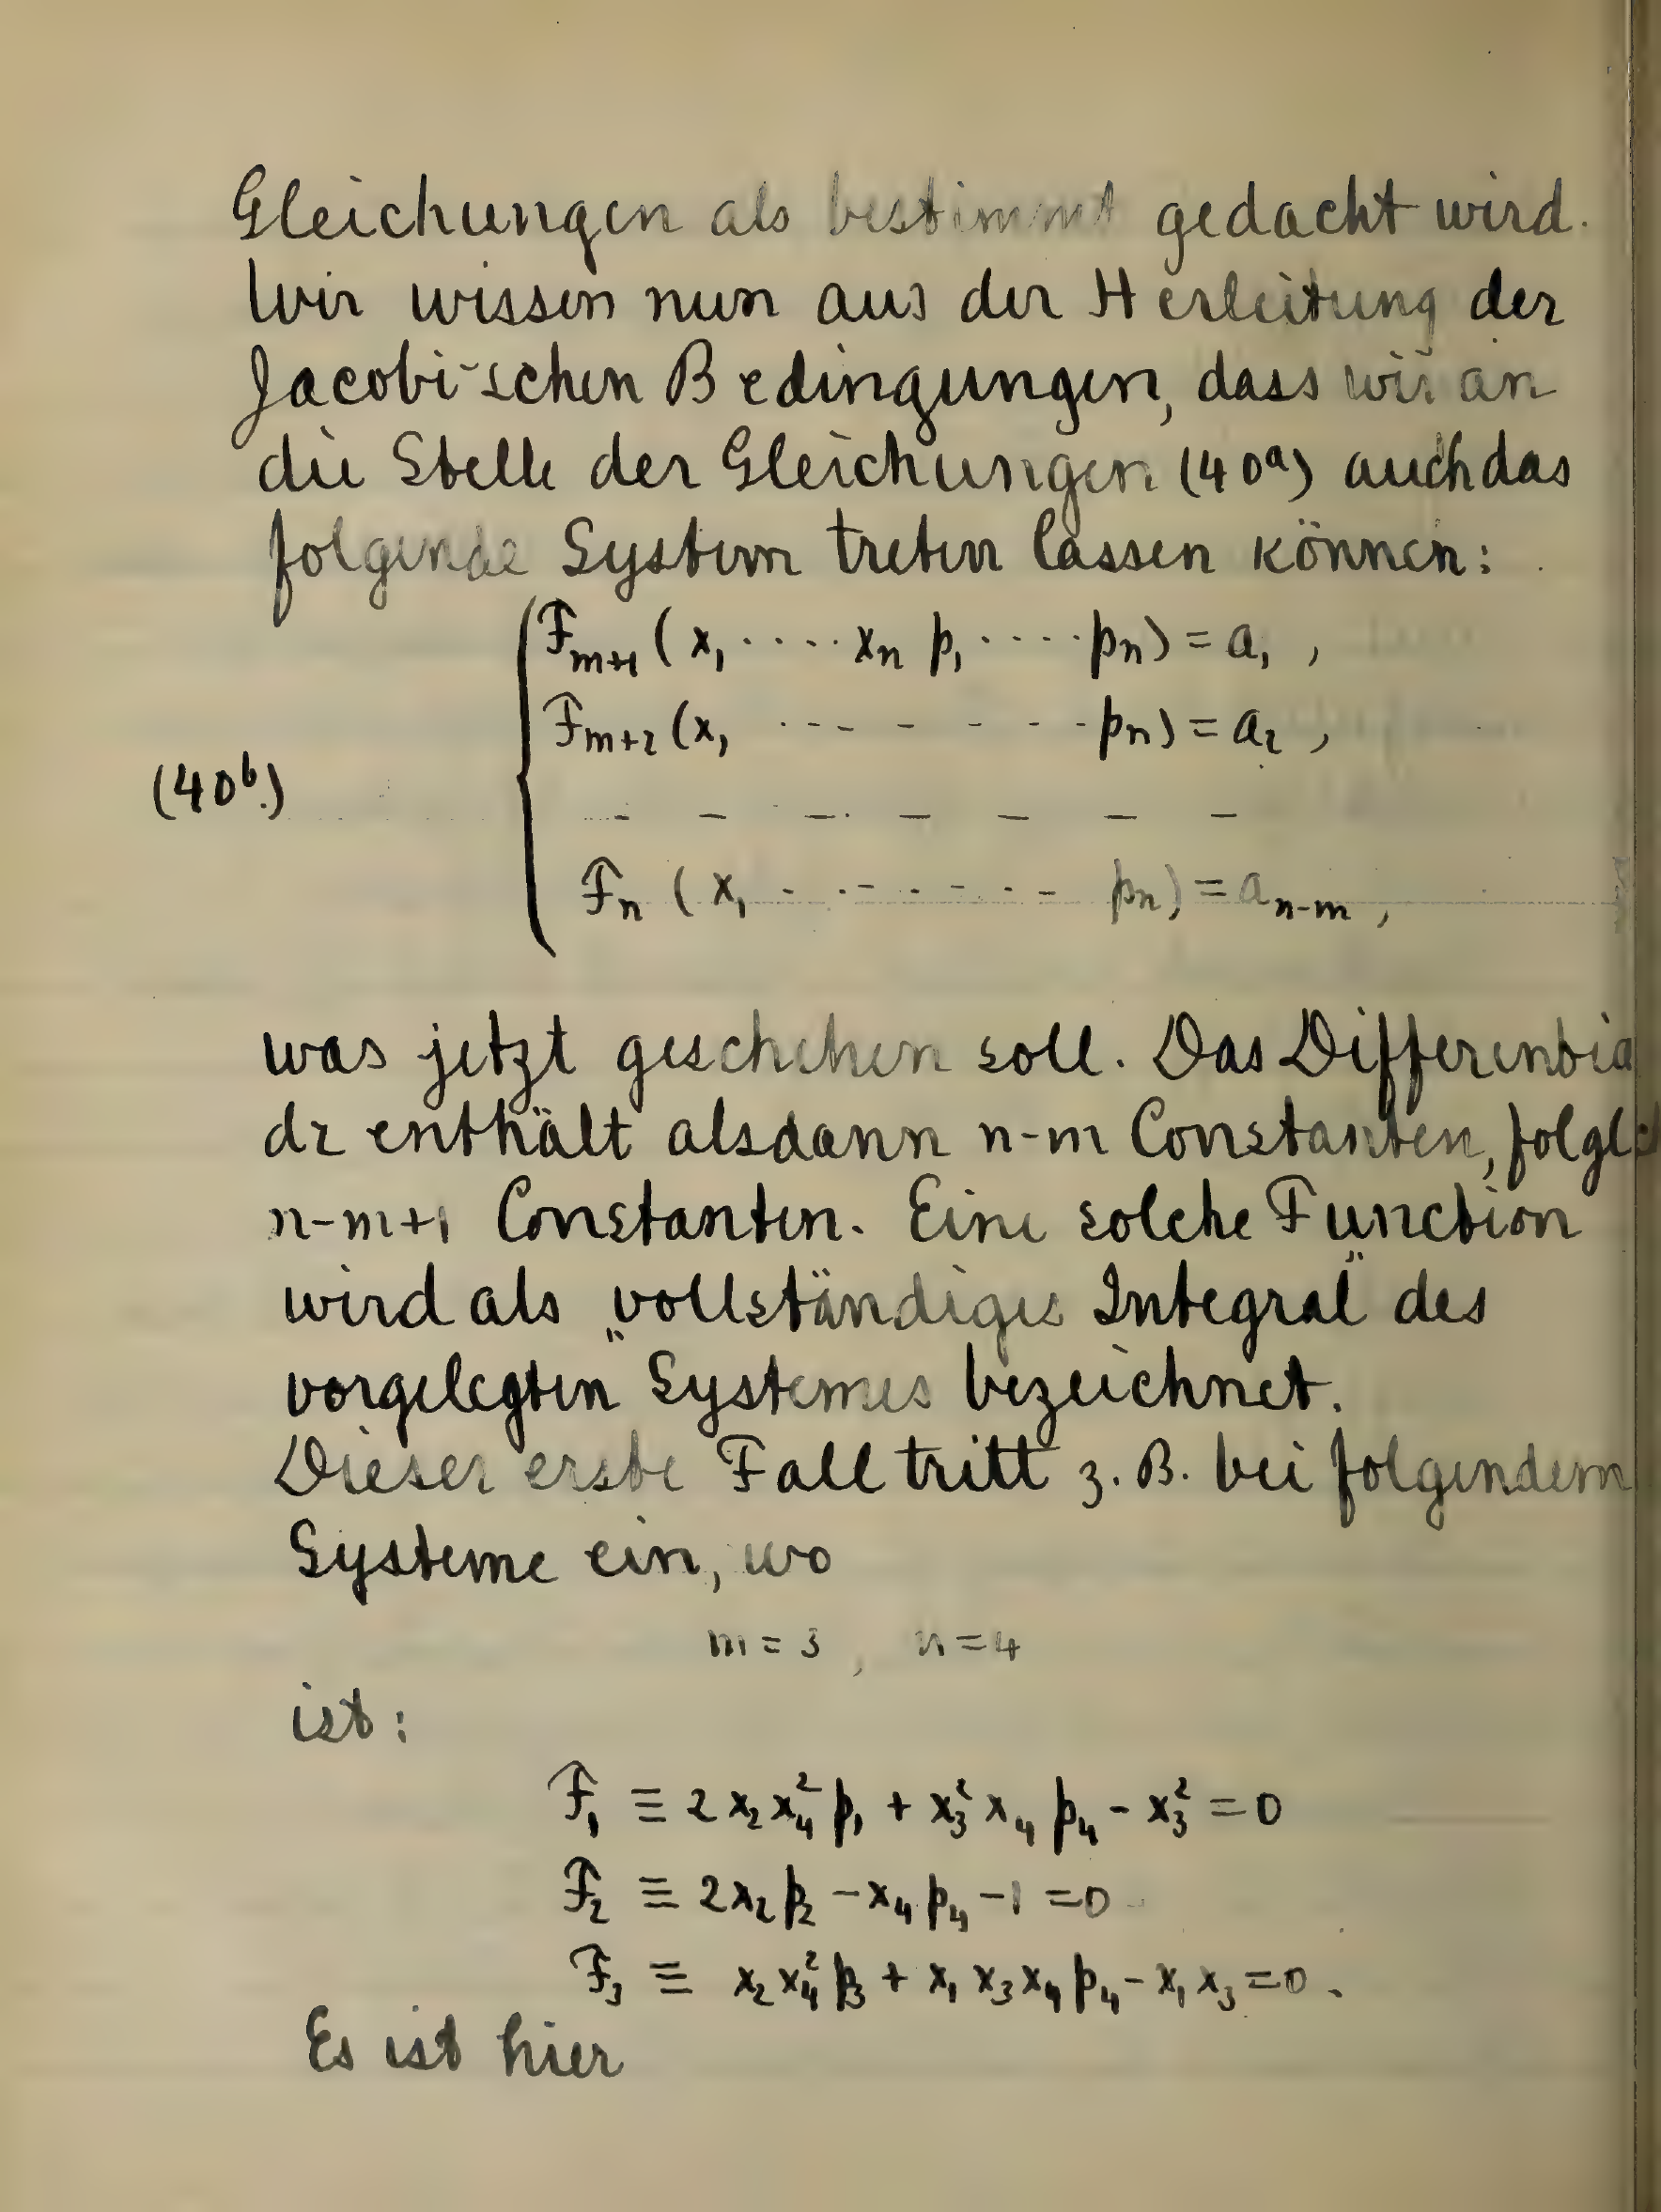 Gleichungen als bestimmt gedacht wird.
Wir wissen nun aus der Herleitung der
Jacobi'schen Bedingungen, dass wir an
die Stelle der Gleichungen (40ᵃ) auch das
folgende System treten lassen können:
F_{m+1} (x₁ ····· xₙ p₁ ····· pₙ) = a₁ ,
F_{m+2} (x₁ ··· - - - - ·· pₙ) = a₂ ,
(40ᵇ.)
— — — — — — —
Fₙ (x₁ - ·- - ·- - ·- pₙ) = a_{n-m} ,
was jetzt geschehen soll. Das Differentia
dz enthält alsdann n-m Constanten, folgl
n-m+1 Constanten. Eine solche Function
wird als „vollständiges Integral" des
vorgelegten Systemes bezeichnet.
Dieser erste Fall tritt z. B. bei folgendem
Systeme ein, wo
m = 3 , n = 4
ist:
F₁ ≡ 2 x₂ x₄² p₁ + x₃² x₄ p₄ - x₃² = 0
F₂ ≡ 2 x₂ p₂ - x₄ p₄ - 1 = 0
F₃ ≡ x₂ x₄² p₃ + x₁ x₃ x₄ p₄ - x₁ x₃ = 0.
Es ist hier